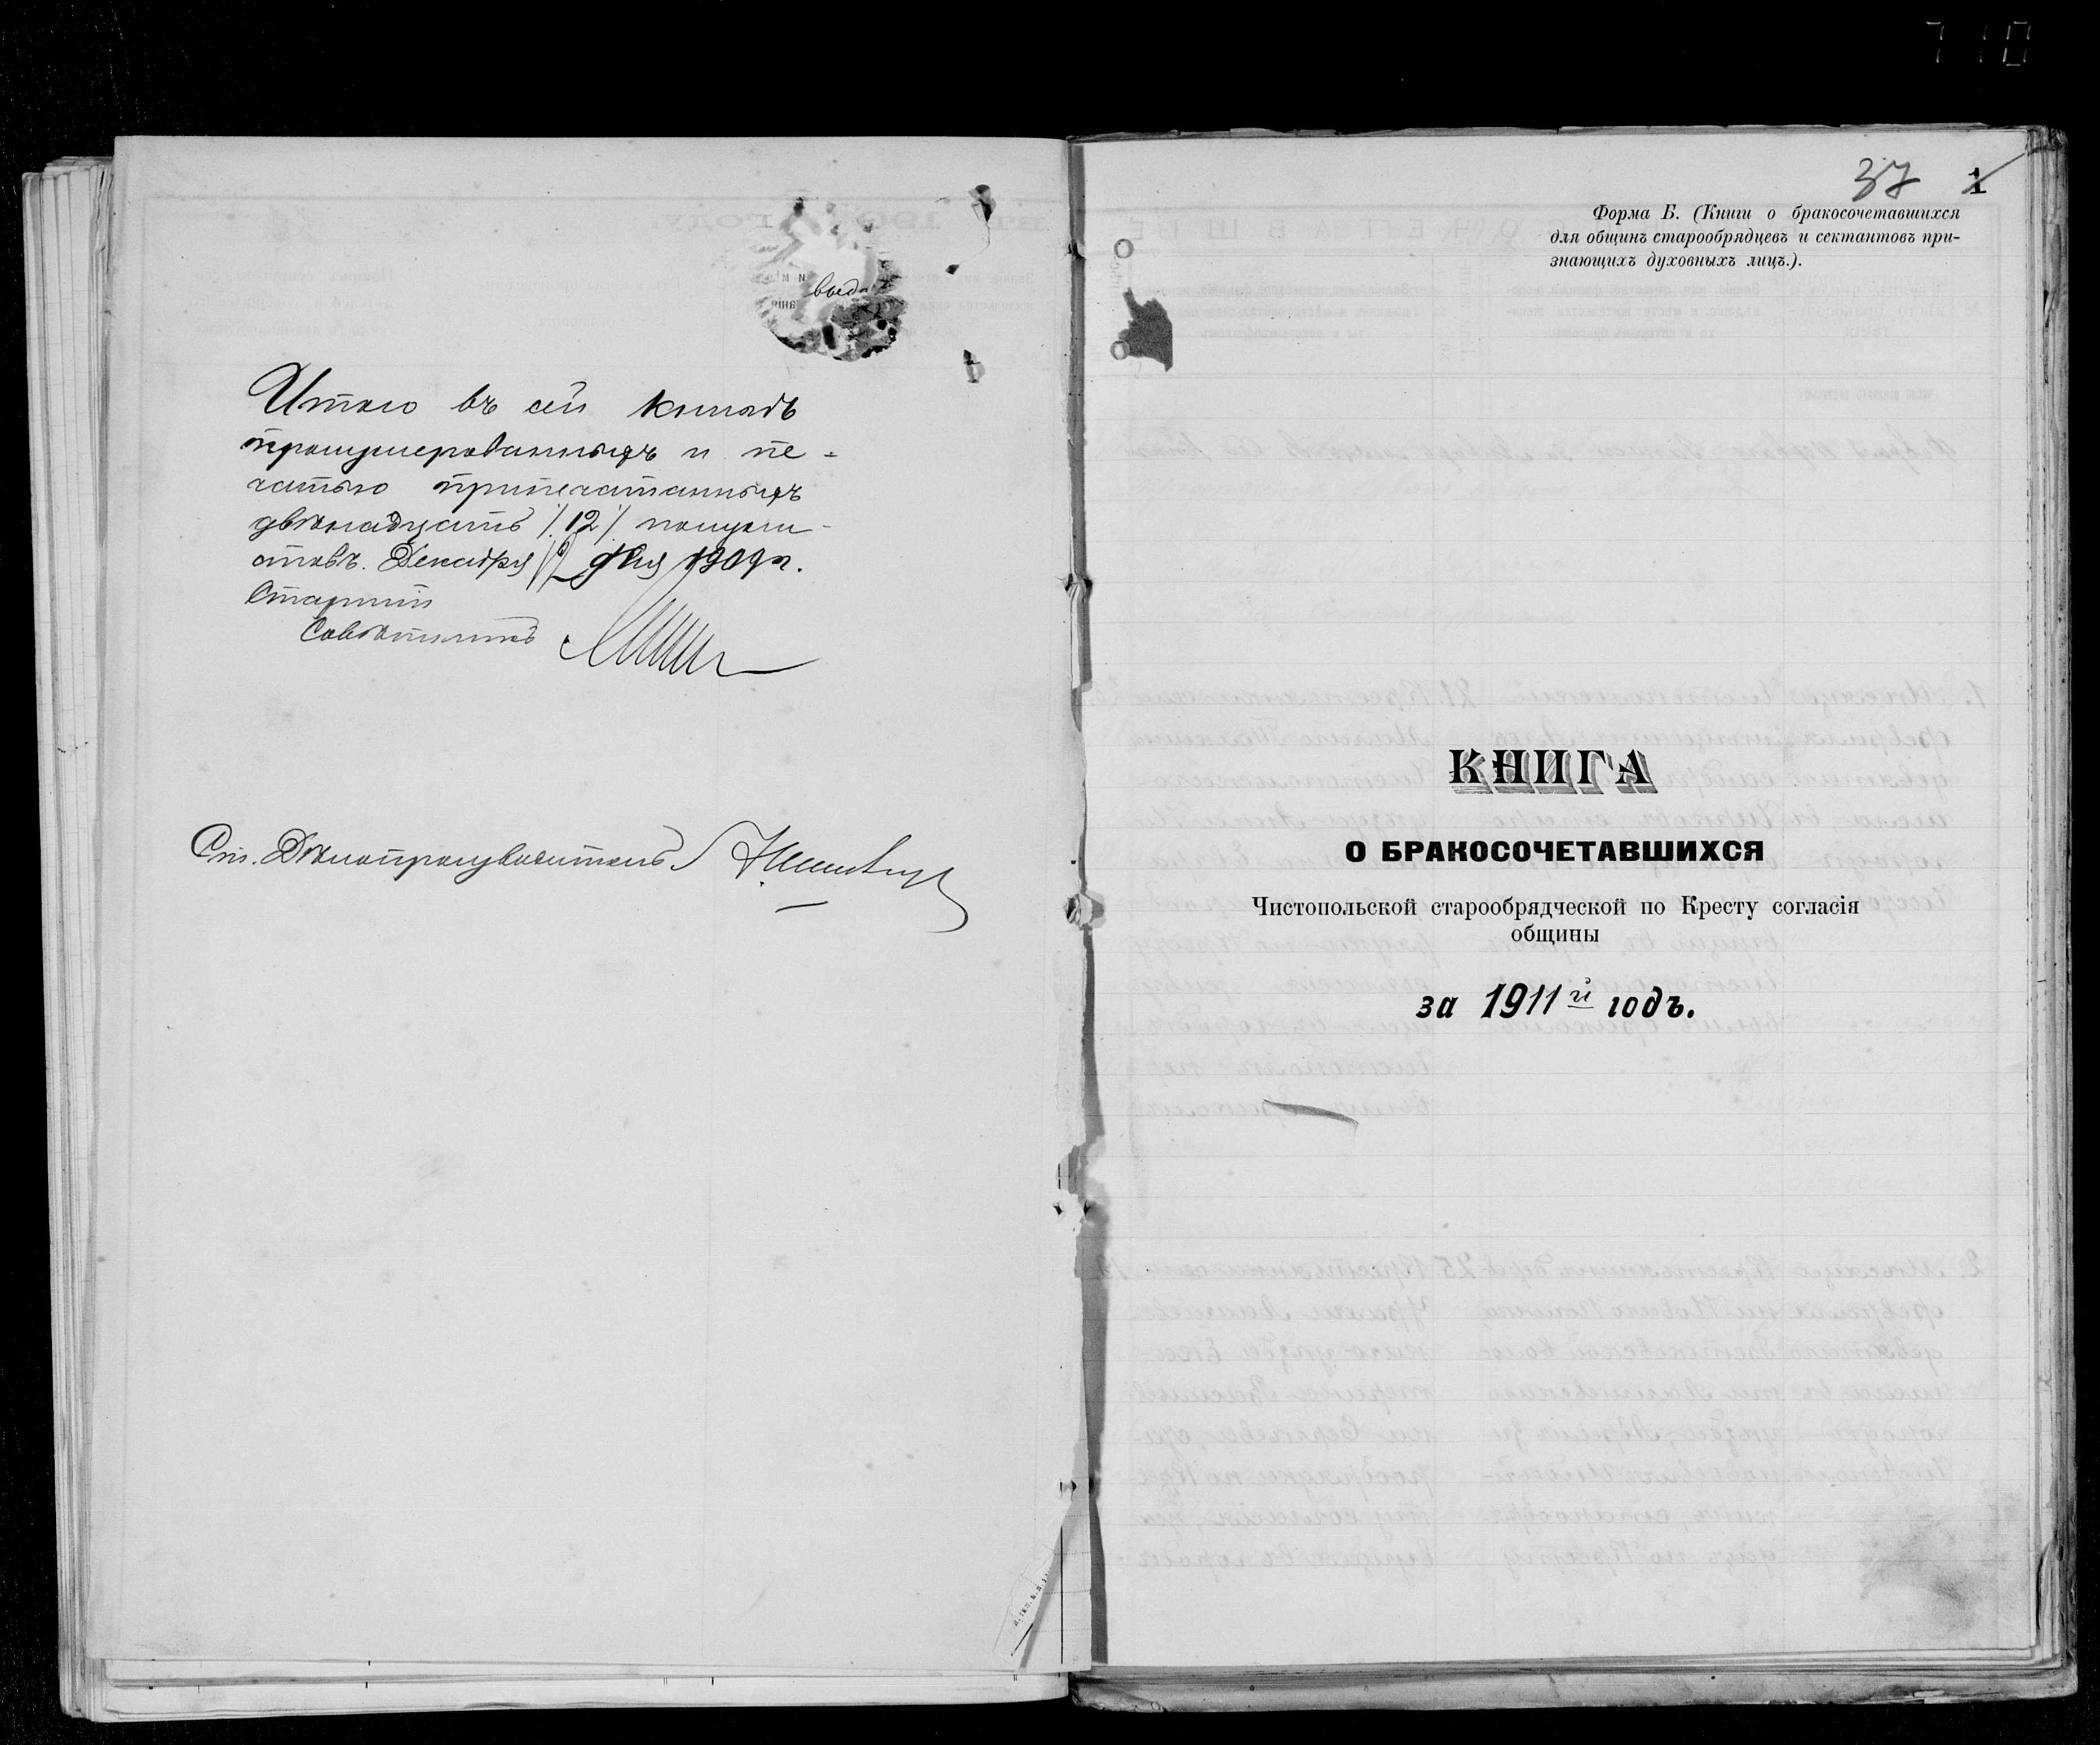 710
выда
Итого въ сей книгѣ
пронумерованныхъ и пе-
чатью припечатанныхъ
двѣнадцать /12/ полули-
стовъ. Декабря дня 1909 г.
Старшій
Совѣтникъ
Ст. Дѣлопроизводитель
37 1
Форма Б. (Книги о бракосочетавшихся
для общинъ старообрядцевъ и сектантовъ при-
знающихъ духовныхъ лицъ.).
КНИГА
О БРАКОСОЧЕТАВШИХСЯ
Чистопольской старообрядческой по Кресту согласія
общины
за 1911й годъ.